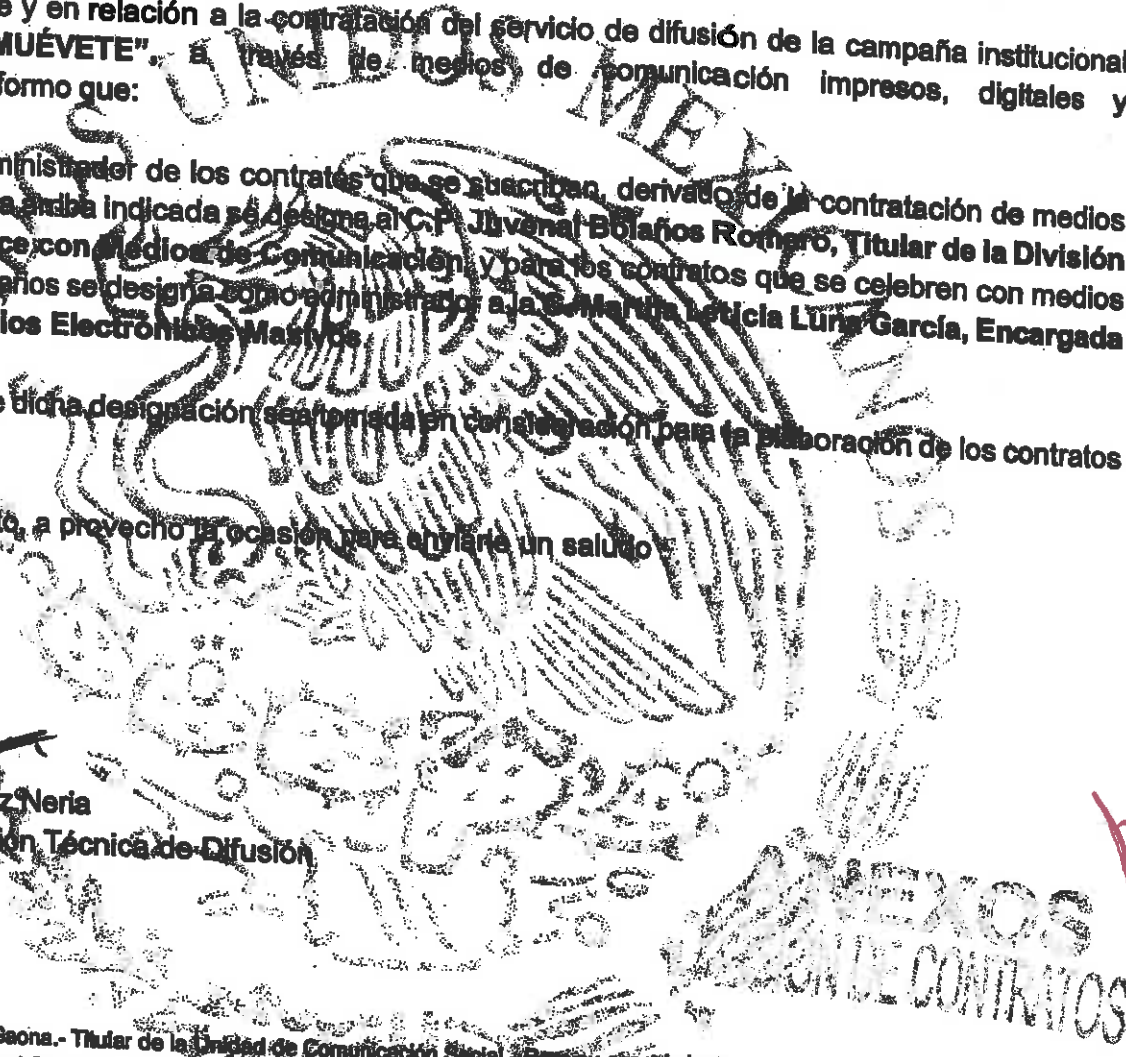 e y en relación a la contratación del servicio de difusión de la campaña institucional
MUÉVETE", a través de medios de comunicación impresos, digitales y
formo que:
ministrador de los contratos que se suscriban, derivado de la contratación de medios
a arriba indicada se designa al C.P. Juvenal Bolaños Romero, Titular de la División
ce con Medios de Comunicación, y para los contratos que se celebren con medios
se designa como administrador a la C. Leticia Luna García, Encargada
ios Electrónicos Masivos.
e dicha designación sea tomada en consideración para la elaboración de los contratos
to, a provecho la ocasión para enviarle un saludo
z Neria
ión Técnica de Difusión
ANEXOS
DE CONTRATOS
UNIDOS MEXICANOS
Gaona.- Titular de la Unidad de Comunicación Social